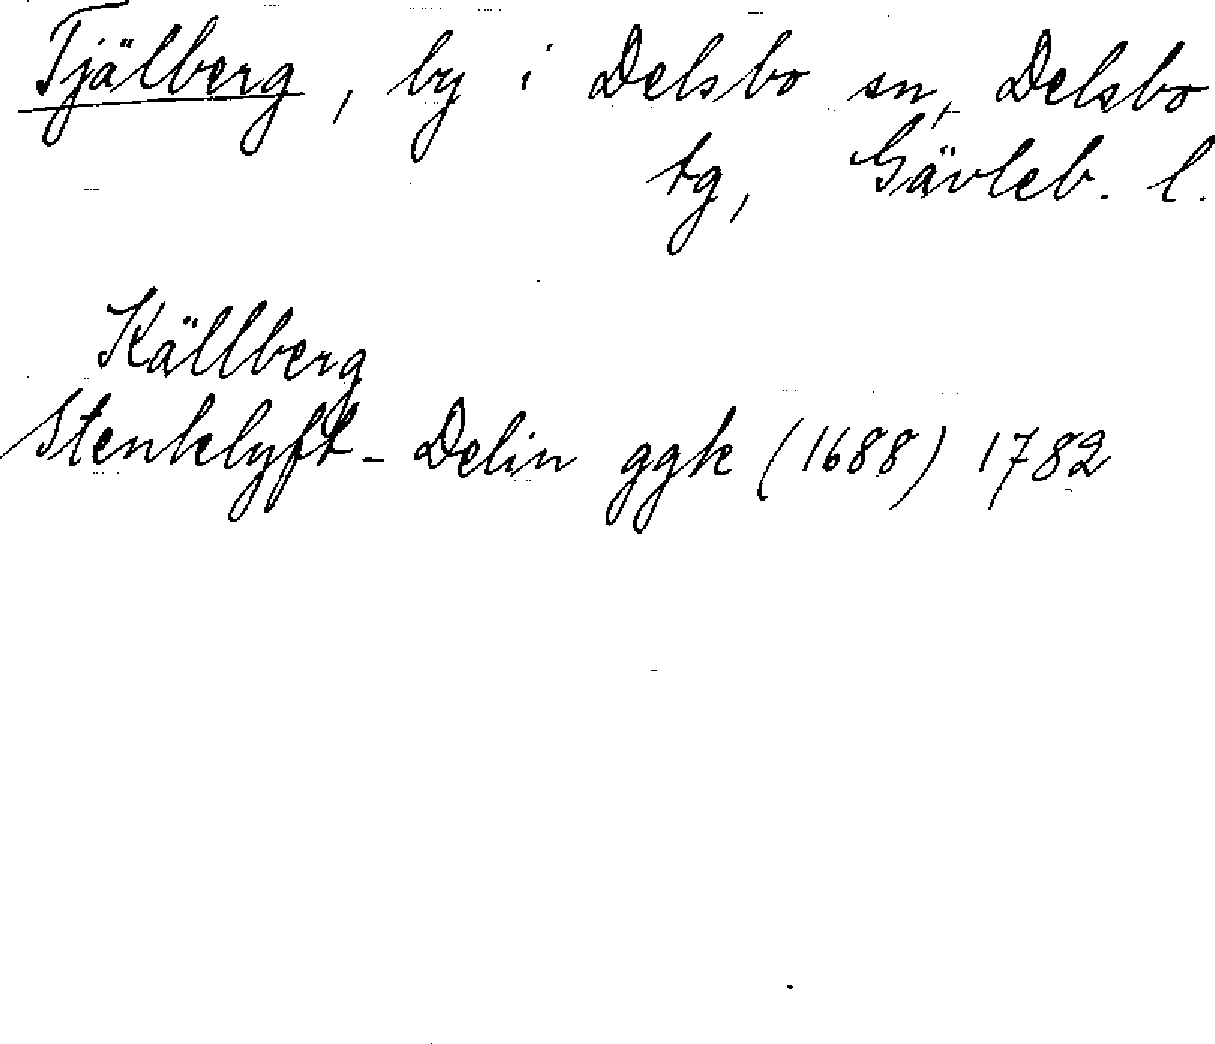 Tjälberg, by i Delsbo sn, Delsbo
tg, Gävleb. l.
Källberg
Stenklyft - Delin ggk (1688) 1782